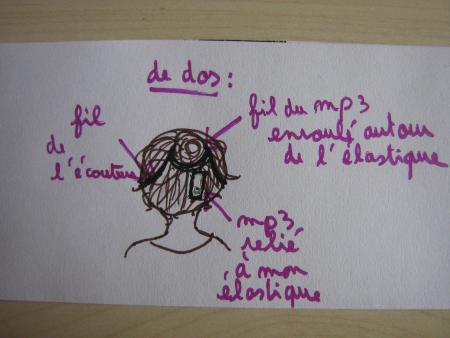 de dos :
fil
de
l'écouteur
fil du mp3
enroulé autour
de l'élastique
mp3
relié
à mon
élastique